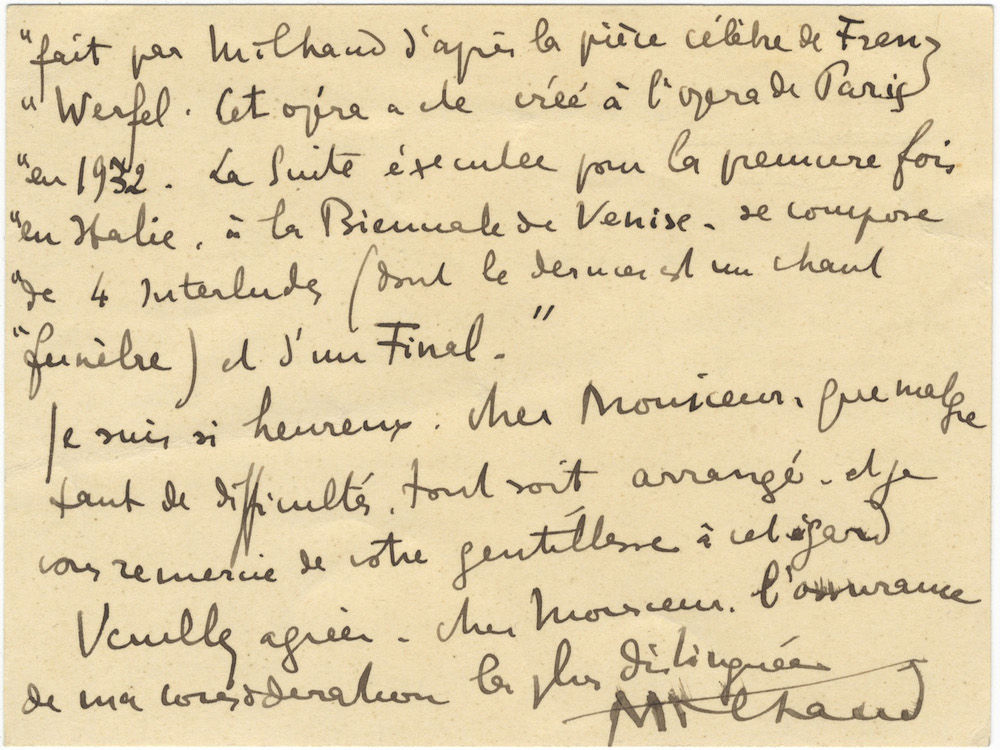 "fait par Milhaud d'après la pièce célèbre de Franz
" Werfel. Cet opéra a été créé à l'opera de Paris
"en 1932. La Suite éxecutée pour la premiere fois
"en Italie, à la Biennale de Venise. se compose
"de 4 Interludes (dont le dernier est un chant
"funèbre) et d'un Final."
Je suis si heureux, cher Monsieur, que malgre
tant de difficultés, tout soit arrangé. et je
vous remercie de votre gentillesse à cet égard
Veuillez agréer. cher Monsieur. l'assurance
de ma consideration la plus distinguée
Milhaud